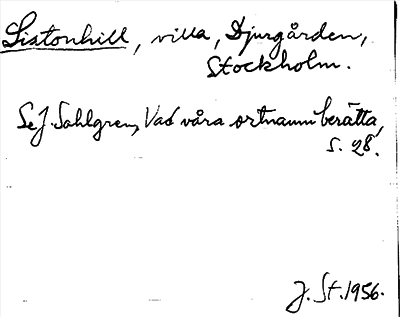 Sixtonhill, villa, Djurgården,
Stockholm.
Se J. Sahlgren, Vad våra ortnamn berätta,
s. 28.
J. St. 1956.